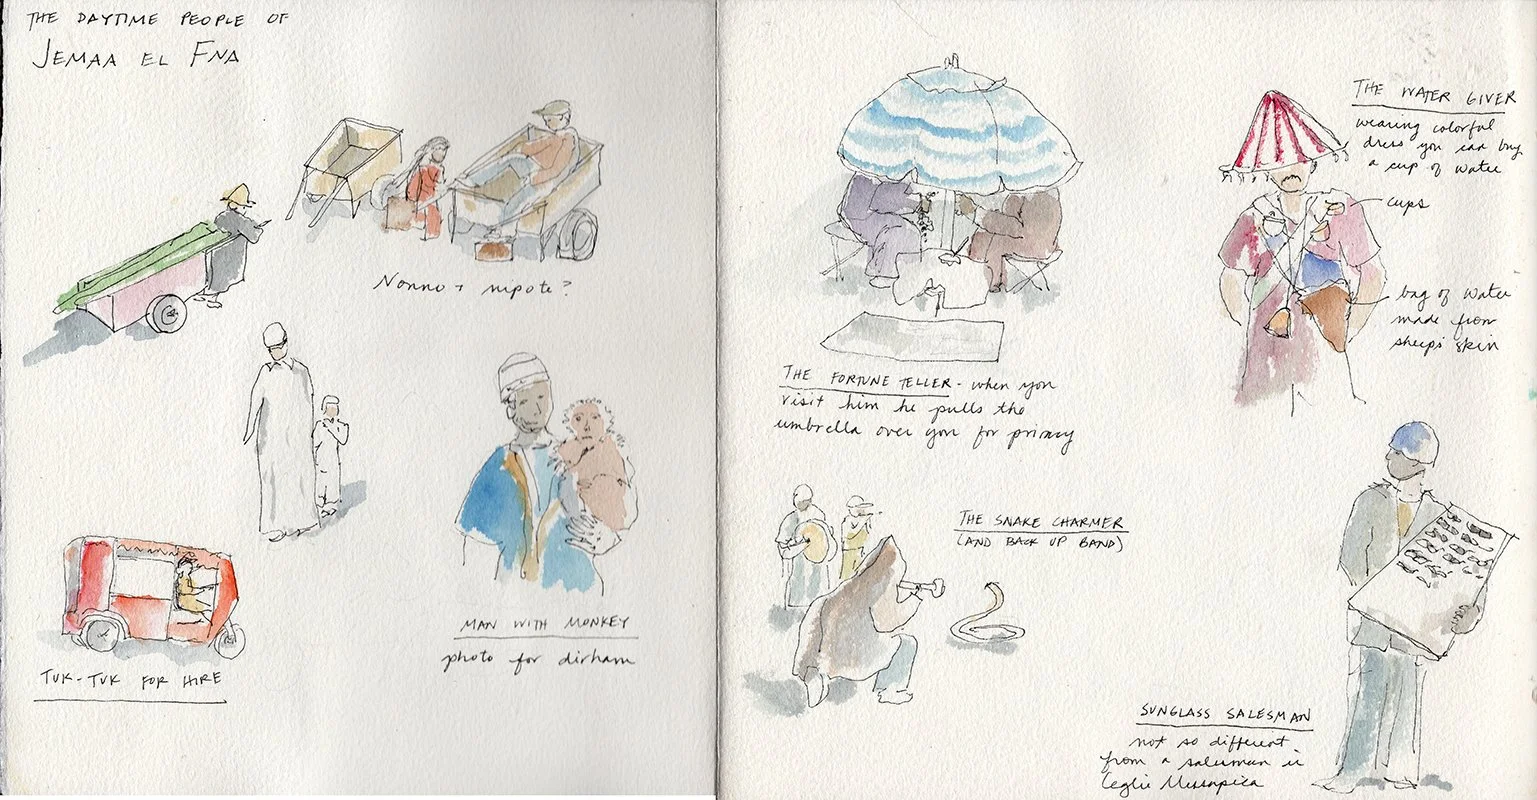 THE DAYTIME PEOPLE OF
JEMAA EL FNA
Nonno + nipote?
MAN WITH MONKEY
photo for dirham
TUK-TUK FOR HIRE
THE FORTUNE TELLER - when you
visit him he pulls the
umbrella over you for privacy
THE WATER GIVER
wearing colorful
dress you can buy
a cup of water
cups
bag of water
made from
sheeps skin
THE SNAKE CHARMER
(AND BACK UP BAND)
SUNGLASS SALESMAN
not so different
from a salesman in
Ceglie Messapica